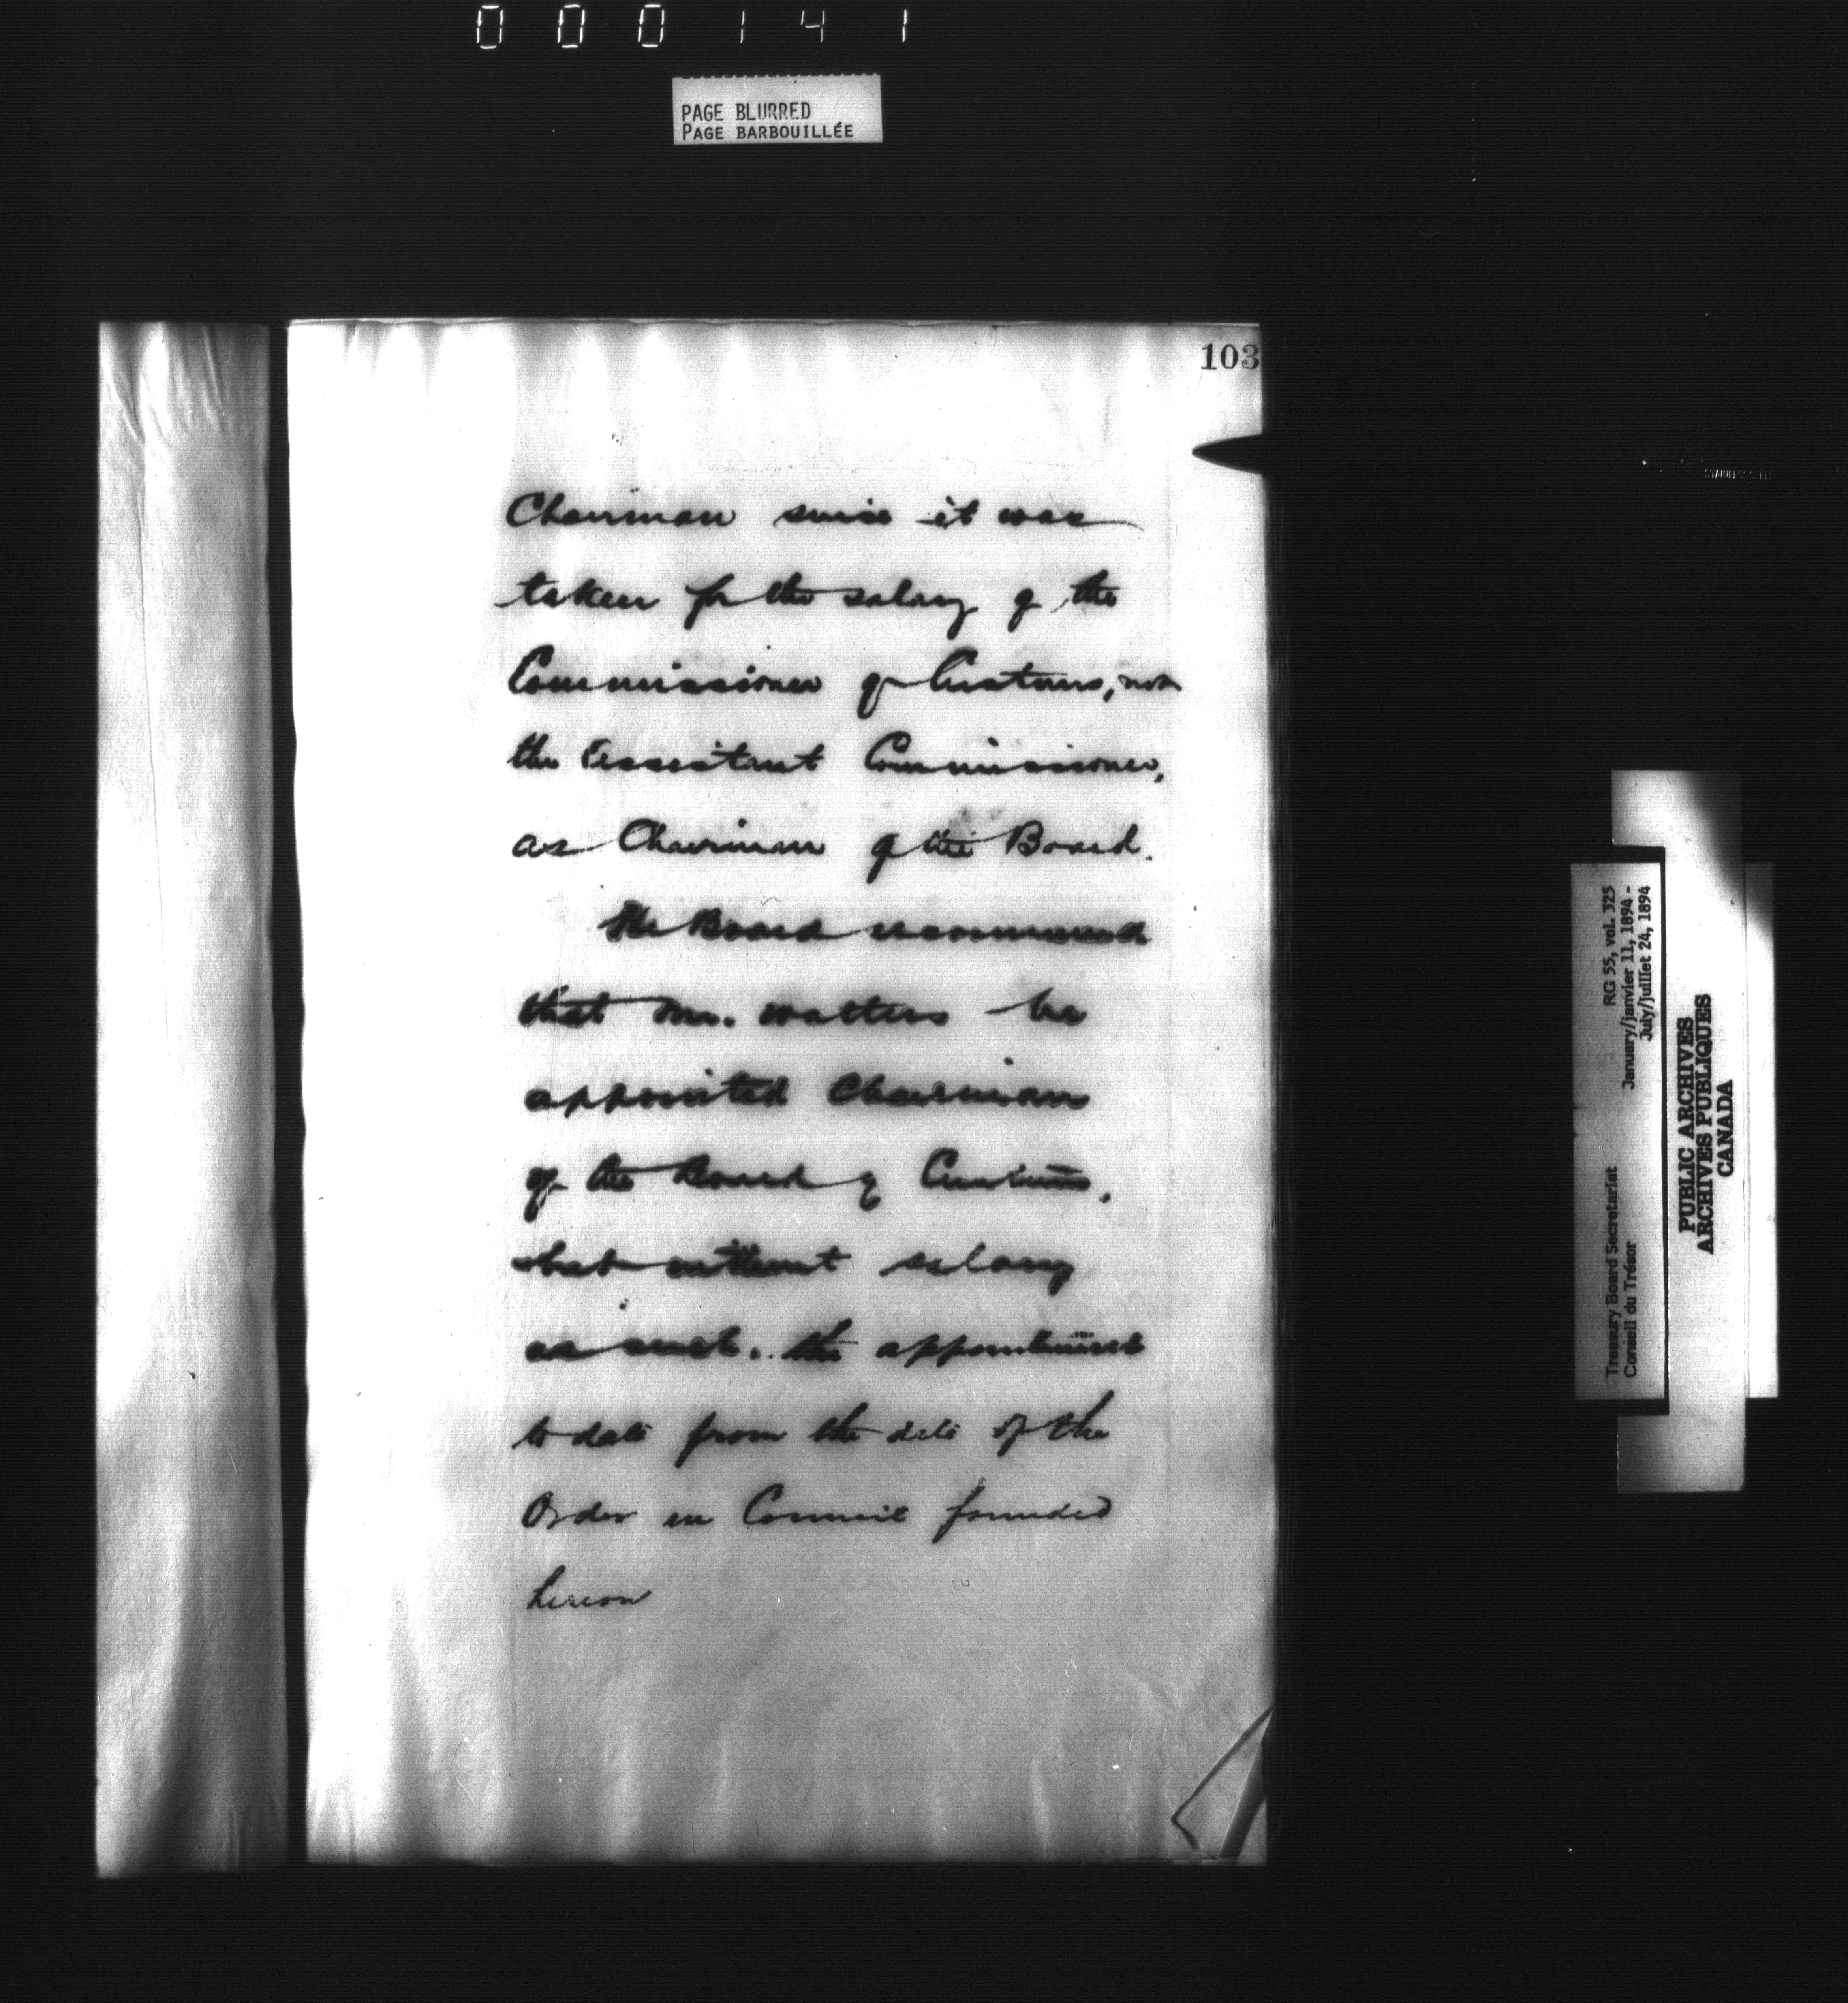 000141
PAGE BLURRED
PAGE BARBOUILLÉE
103
Chairman since it was
taken for the salary of the
Commissioner of Customs, not
the Assistant Commissioner,
as Chairman of the Board.
The Board recommend
that Mr. Watters be
appointed Chairman
of the Board of Customs,
but without salary
as such. The appointment
to date from the date of the
Order in Council founded
hereon
Treasury Board Secretariat RG 55, vol. 325
Conseil du Trésor January/janvier 11, 1894 -
July/juillet 24, 1894
PUBLIC ARCHIVES
ARCHIVES PUBLIQUES
CANADA